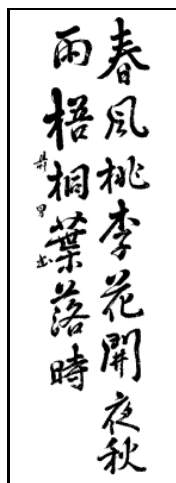 春風桃李花開夜秋
雨梧桐葉落時